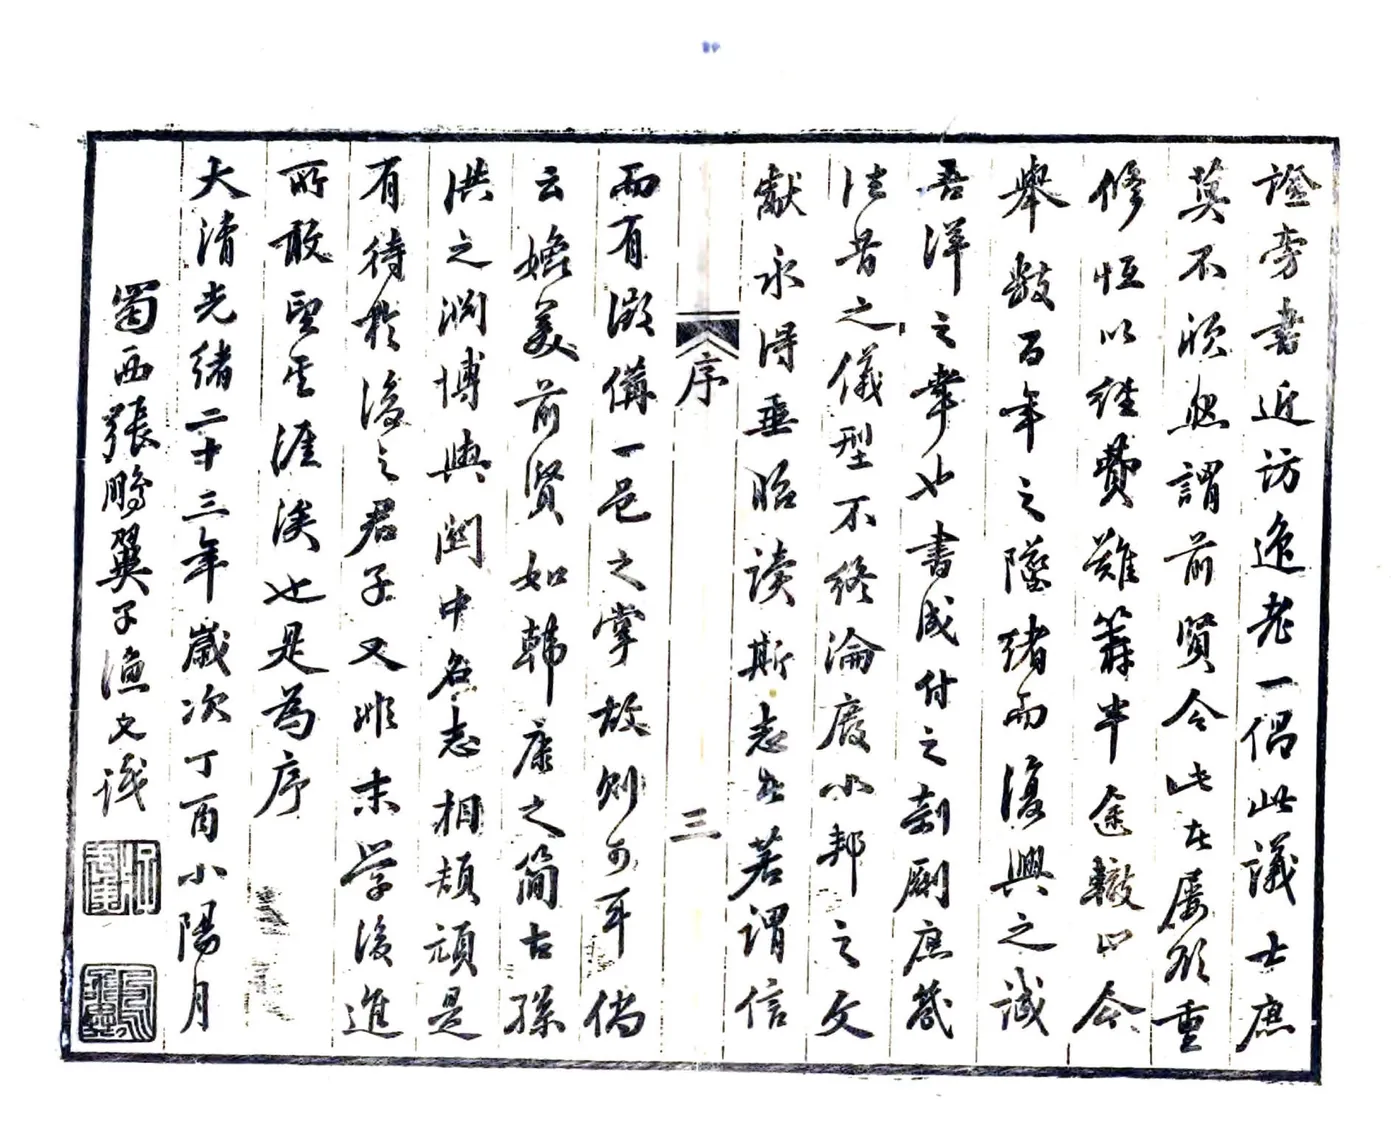 證旁書近訪逸老一倡此議士庶
莫不欣然謂前賢令此在屢欲重
修恒以經費難籌半途輟止今
舉數百年之墜緒而復興之誠
吾洋之幸也書成付之剞劂庶幾
往昔之儀型不終淪廢小邦之文
獻永得垂貽读斯志者若謂信
序 三
而有徵備一邑之掌故則可耳倘
云媲美前賢如韓康之簡古孫
洪之淵博與關中名志相頡頏是
有待於後之君子又非末學後進
所敢望其涯涘也是為序
大清光緒二十三年歲次丁酉小陽月
蜀西張鵬翼子漁父識